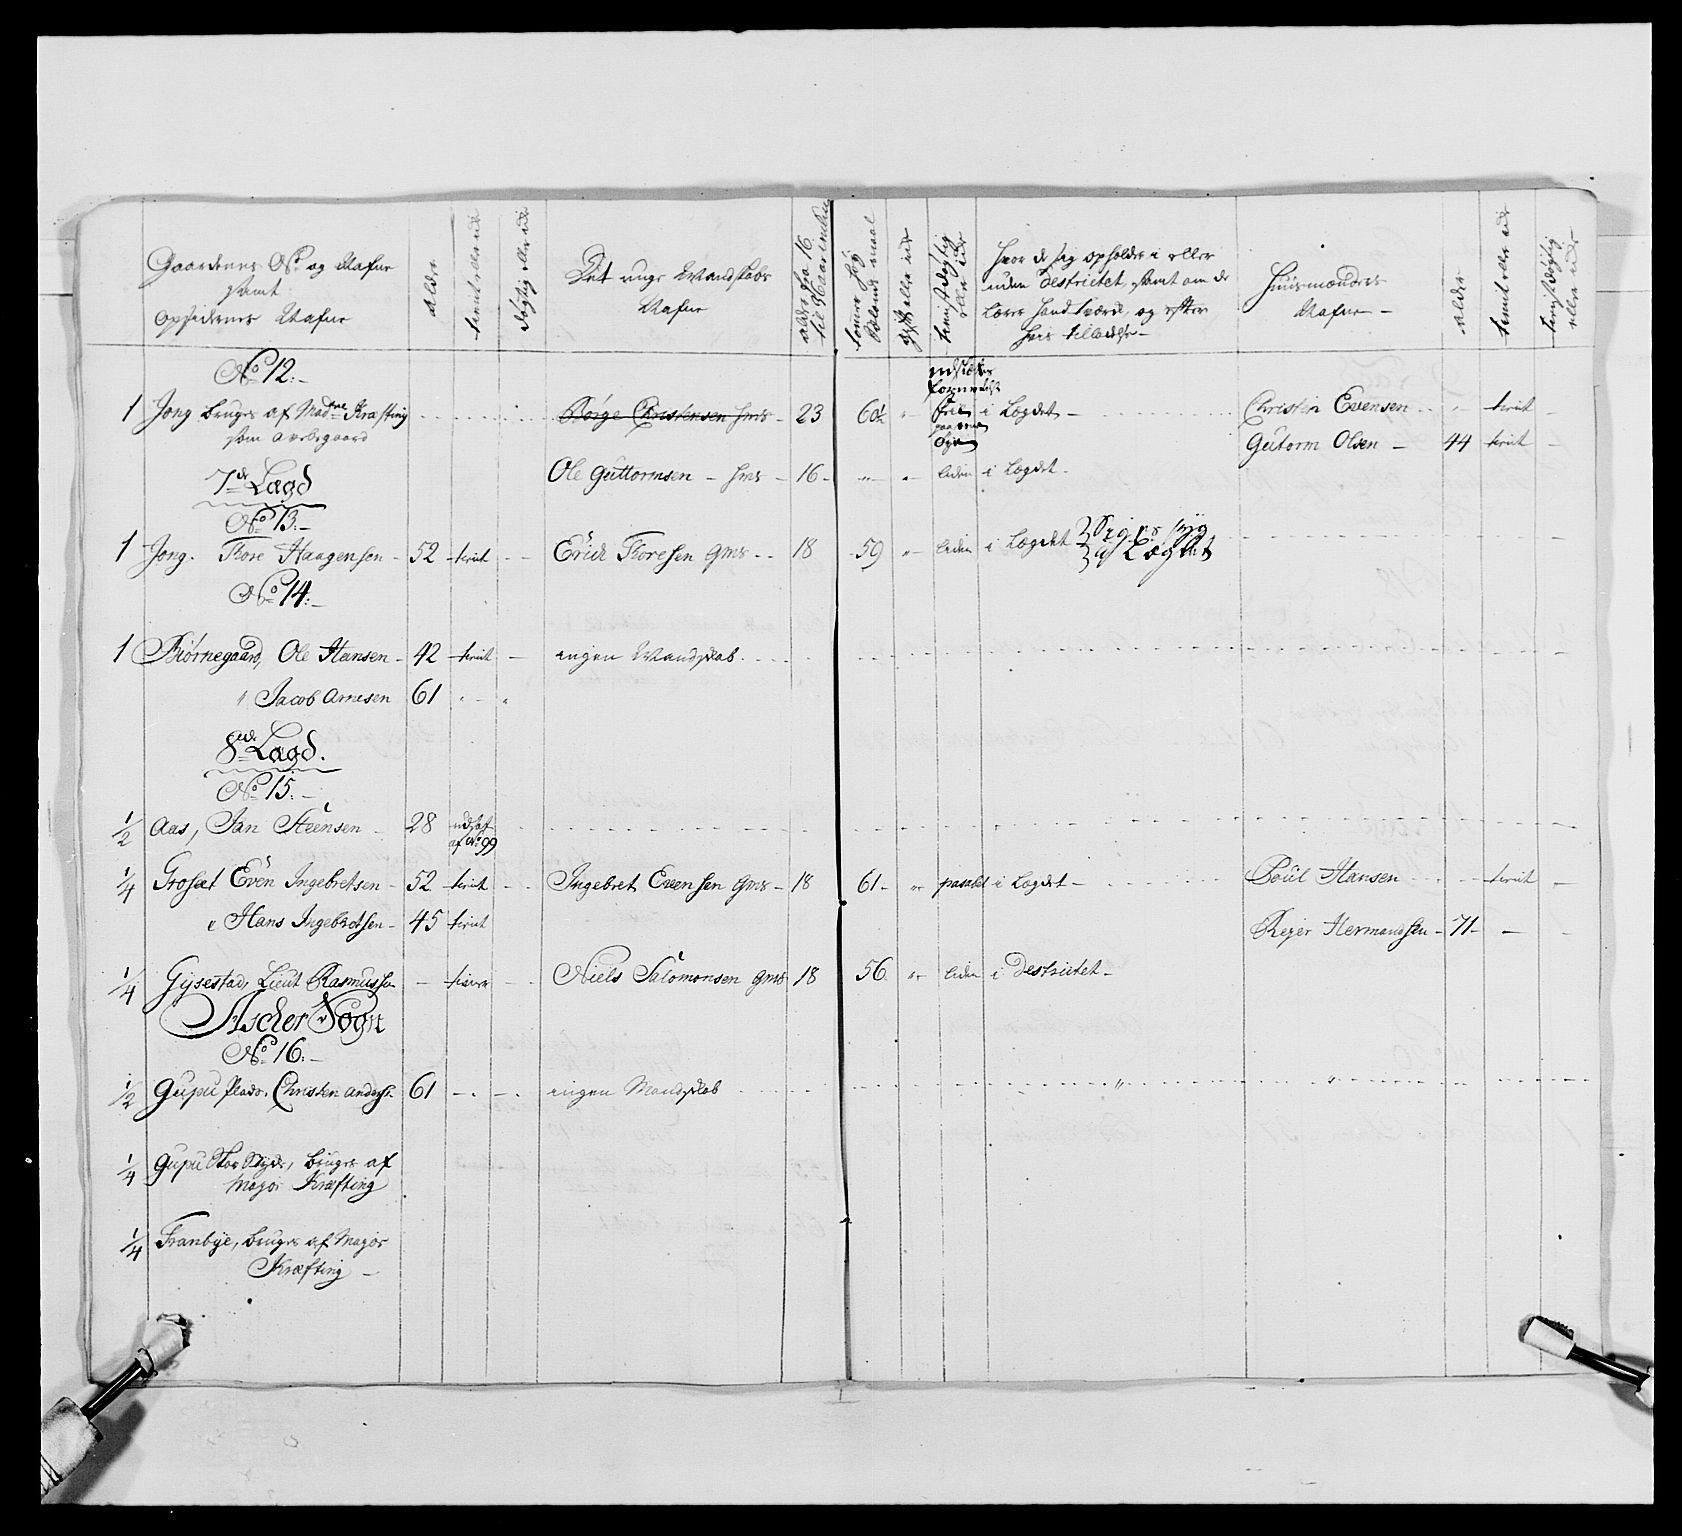 Gaardenes No og Nafne
samt
Opsidernes Nafne
alder
tient eller ei
dygtig eller ei
Det unge Mandskabs
Nafne
alder fra 16
til 36 aar
gift eller ei
tienstdygtig
eller ei
Hvor de sig opholder i eller
uden Destrictet, samt om de
lærer Handtværck, og efter
hvis tilladelse
Huusmændenes
Nafne
alder
tient eller ei
tienstdygtig
eller ei
No 12:
1 Jong bruges af Madme Krafting
som avelsgaard
Børge Christensen hms 23 60½ " i Lægdet
Christen Evensen " tient
Ole Guttormsen hms 16 " " liden i Lægdet
Gutorm Olsen 44 tient
7de Lægd
No 13:
1 Jong. Tore Haagensen 52 tient Erich Toresen gms 18 59 " liden i Lægdet
No 14:
1 Biørnegaard, Ole Hansen 42 tient ingen Mandskab
" Jacob Arnesen 61 " "
8de Lægd.
No 15:
1/2 Aas, Jan Steensen 28 udsat
af No 99
1/4 Grosæt Even Ingebretsen 52 tient Ingebret Evensen gms 18 61 " i Lægdet Poul Hansen tient
" Hans Ingebretsen 45 tient Reyer Hermandsen 71
1/4 Gysestad, Lieut Rasmussen Niels Salomonsen gms 18 56 " liden i Destrictet
Ascher Sogn
No 16:
1/2 Gupu Plads, Christen Anders. 61 ingen Mandskab " "
1/4 Gupu bruges af
Major Kræfting
1/4 Tranbye, bruges af Major
Kræfting